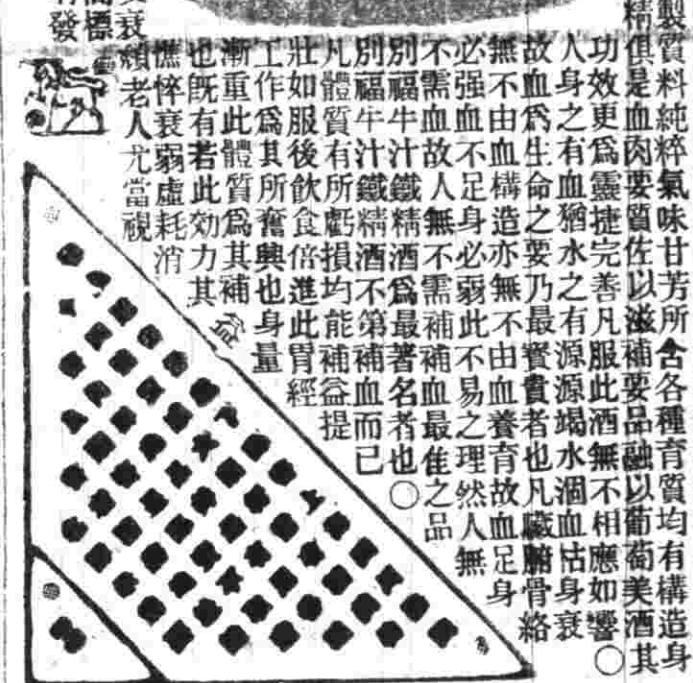 製質料純粹氣味甘芳所含各種育質均有構造身
精俱是血肉要質佐以滋補要品融以葡萄美酒其
功效更爲靈捷完善凡服此酒無不相應如響〇
人身之有血猶水之有源源竭水涸血枯身衰
故血爲生命之要乃最寳貴者也凡臟腑骨絡
無不由血構造亦無不由血養育故血足身
必强血不足身必弱此不易之理然人無
不需血故人無不需補補血最佳之品
別福牛汁鐵精酒爲最著名者也〇
別福牛汁鐵精酒不第補血而已
凡體質有所虧損均能補益提
壯如服後飲食倍進此胃經
工作爲其所奮興也身量
漸重此體質爲其補益
也旣有若此効力其
憔悴衰弱虛耗消
衰頹老人尤當視
標
發